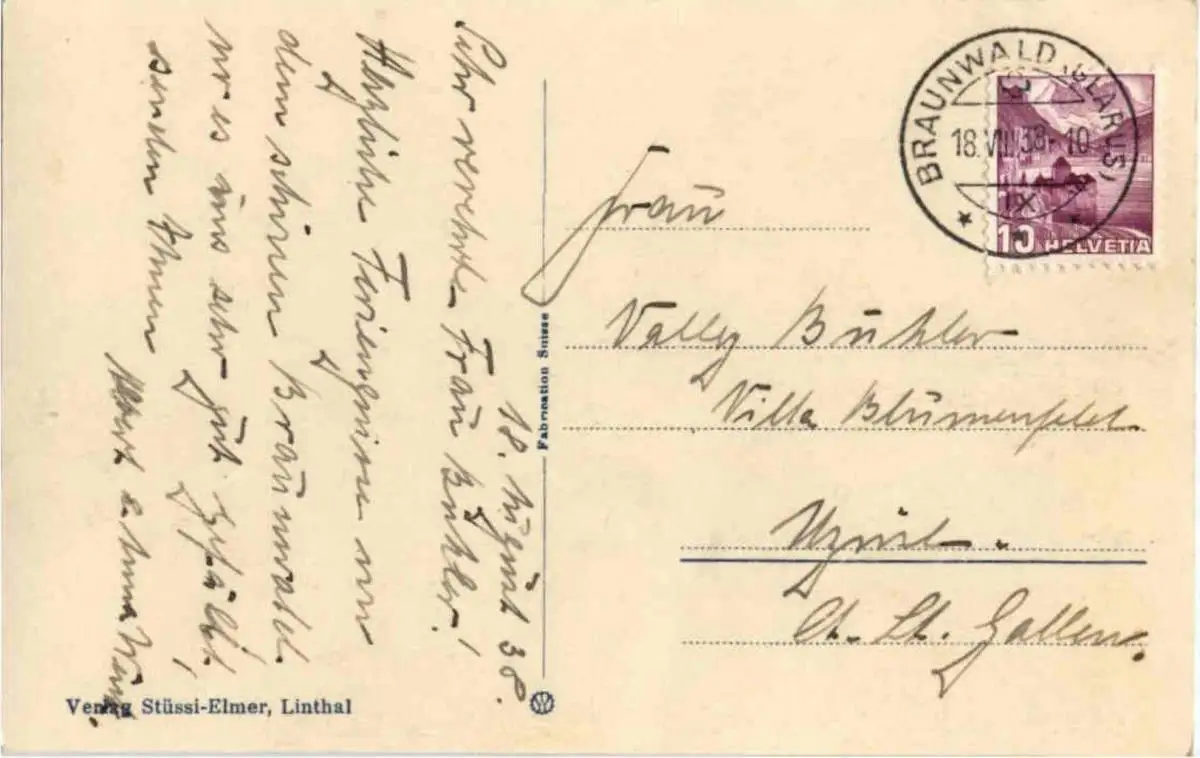 18. August 38.
Sehr verehrte Frau Bühler!
Herzliche Feriengrüsse von
dem schönen Braunwald
wo es uns sehr gut gefällt,
senden Ihnen
Albert & Anna
Frau
Vally Bühler
Villa Blumenfeld.
Uzwil.
Ct. St. Gallen.
BRAUNWALD (GLARUS)
18.VIII.38-10
10 HELVETIA
Fabrication Suisse
Verlag Stüssi-Elmer, Linthal